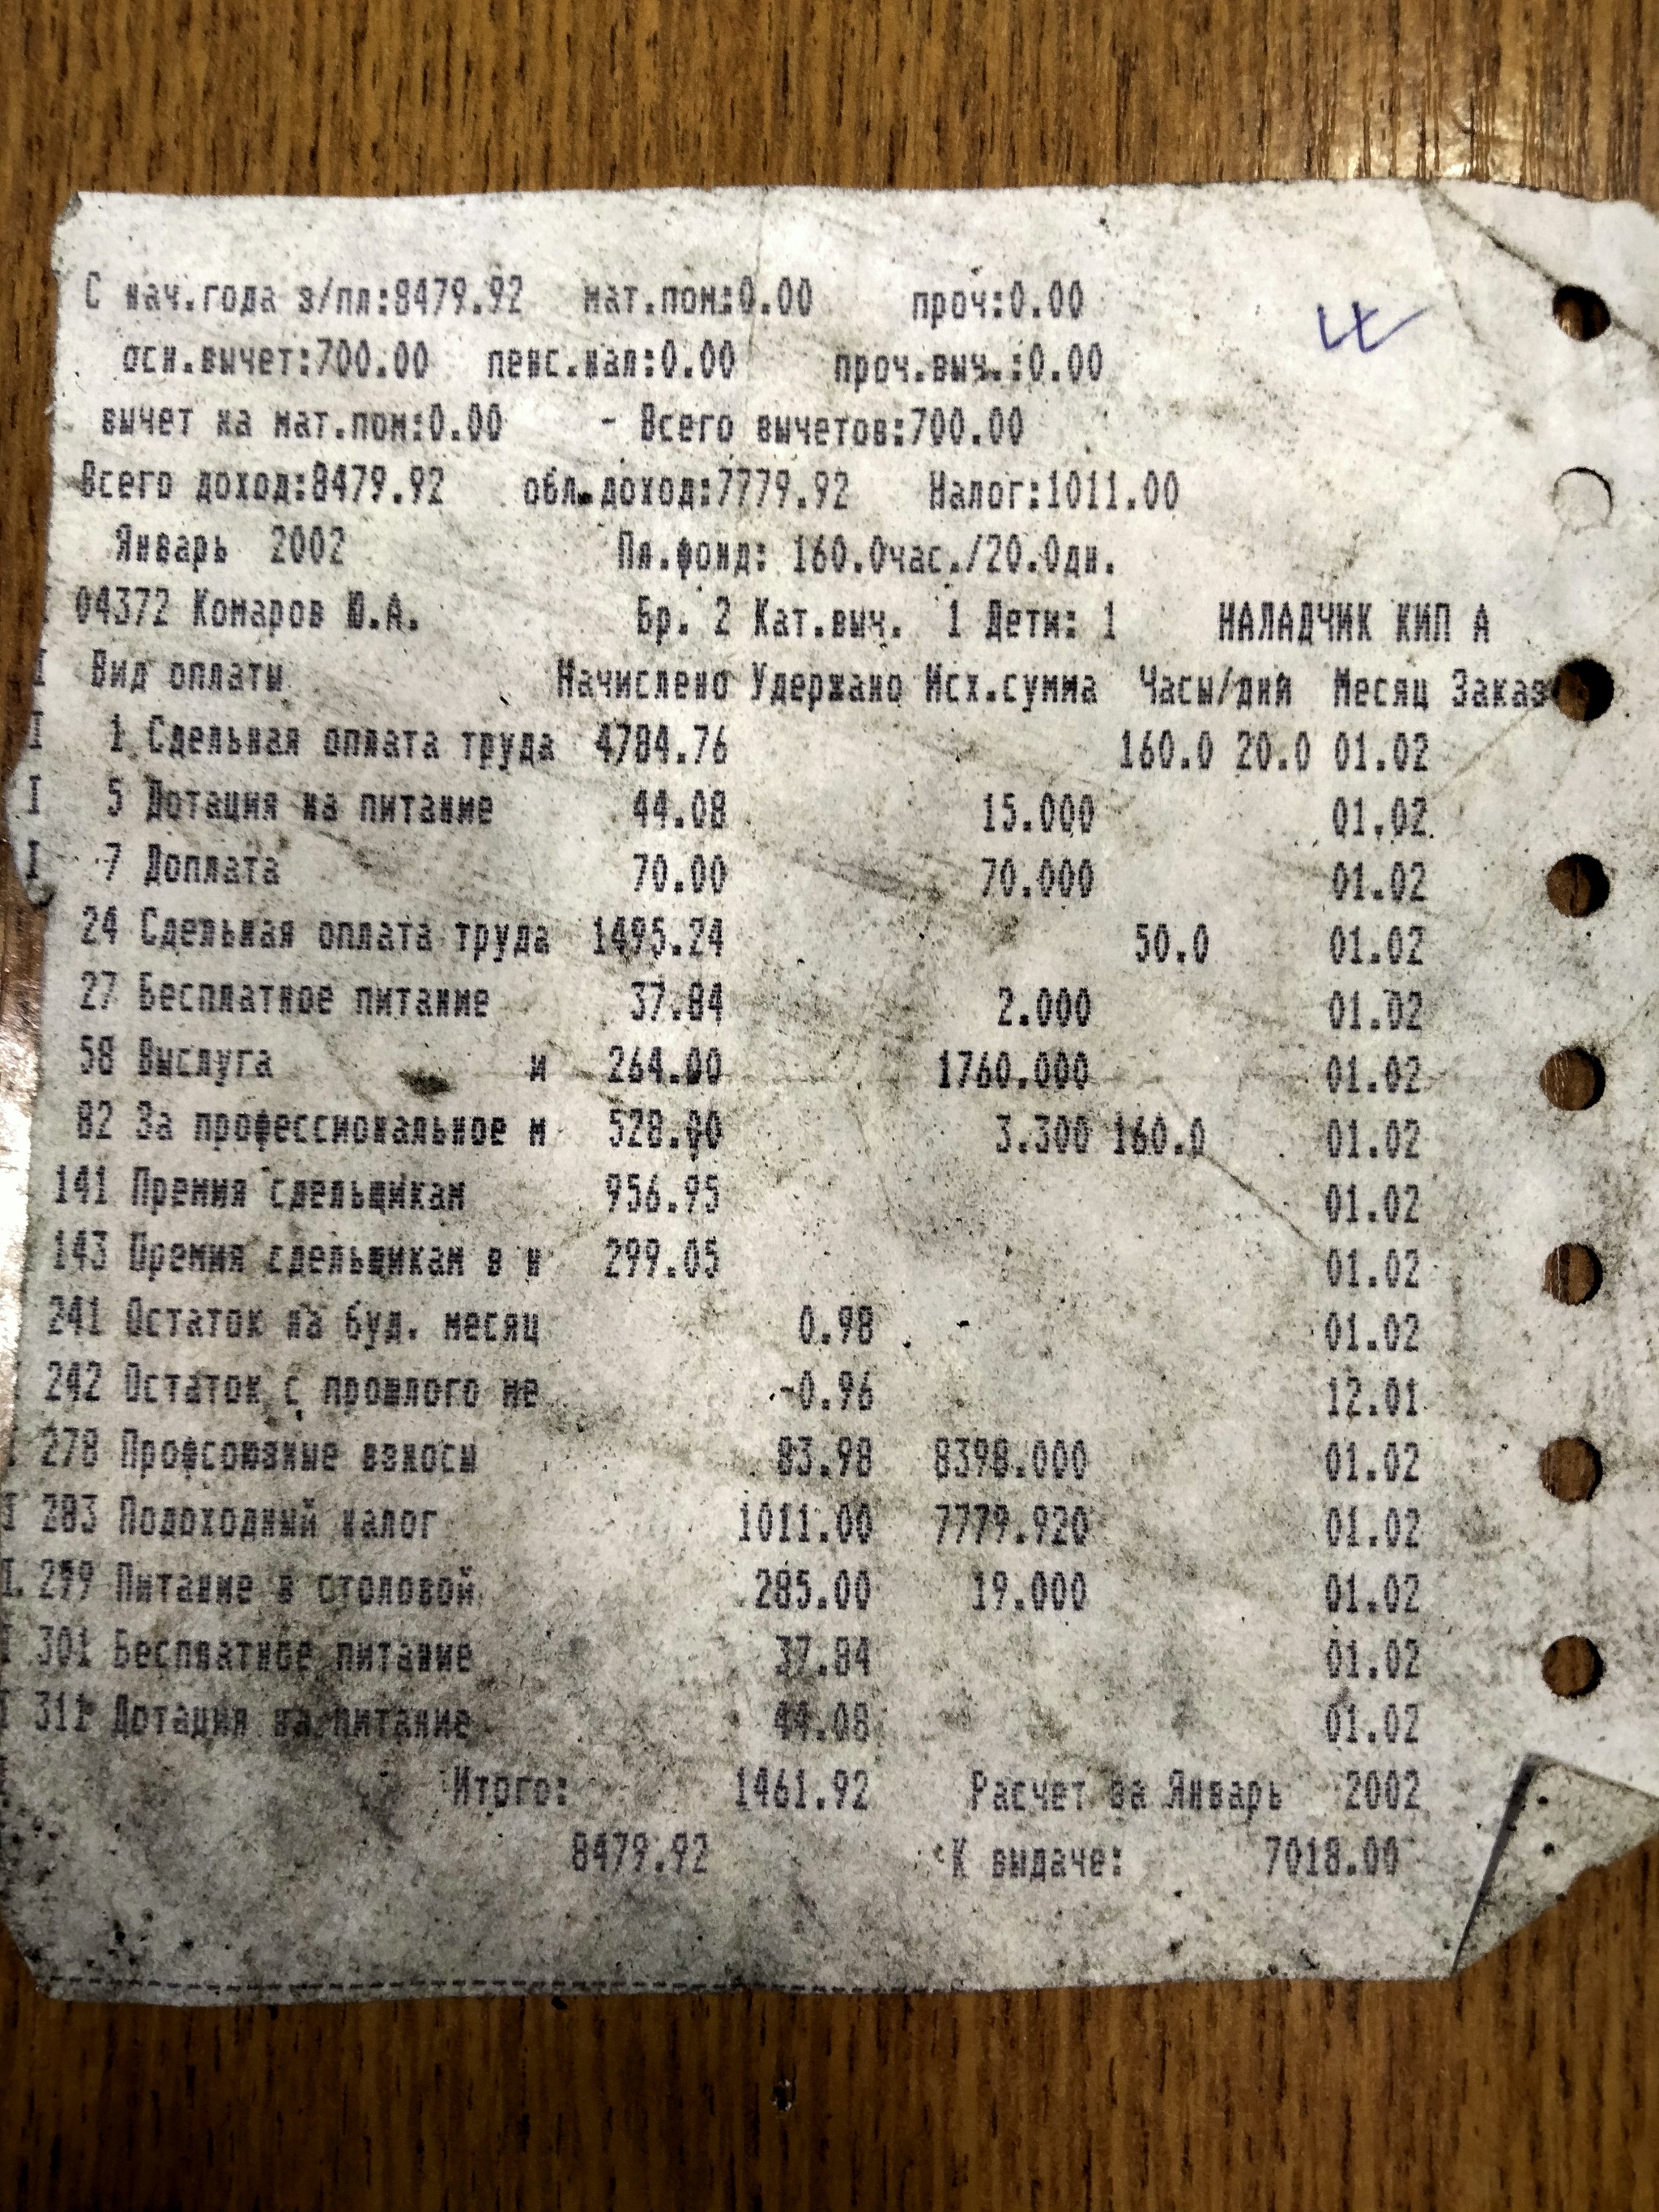 С нач.года з/пл:8479.92 мат.пом:0.00 проч:0.00
осн.вычет:700.00 пенс.нал:0.00 проч.выч.:0.00
вычет на мат.пом:0.00 - Всего вычетов:700.00
Всего доход:8479.92 обл.доход:7779.92 Налог:1011.00
Январь 2002 Пл.фонд: 160.0час./20.0дн.
04372 Комаров Ю.А. Бр. 2 Кат.выч. 1 Дети: 1 НАЛАДЧИК КИП А
I Вид оплаты Начислено Удержано Исх.сумма Часы/дни Месяц Заказ
I 1 Сдельная оплата труда 4784.76 160.0 20.0 01.02
I 5 Дотация на питание 44.08 15.000 01.02
I 7 Доплата 70.00 70.000 01.02
24 Сдельная оплата труда 1495.24 50.0 01.02
27 Бесплатное питание 37.84 2.000 01.02
58 Выслуга и 264.00 1760.000 01.02
82 За профессиональное м 528.00 3.300 160.0 01.02
141 Премия сдельщикам 956.95 01.02
143 Премия сдельщикам в н 299.05 01.02
241 Остаток на буд. месяц 0.98 01.02
242 Остаток с прошлого ме -0.96 12.01
I 278 Профсоюзные взносы 83.98 8398.000 01.02
I 283 Подоходный налог 1011.00 7779.920 01.02
I 299 Питание в столовой 285.00 19.000 01.02
I 301 Бесплатное питание 37.84 01.02
I 311 Дотация на питание 44.08 01.02
Итого: 1461.92 Расчет за Январь 2002
8479.92 К выдаче: 7018.00